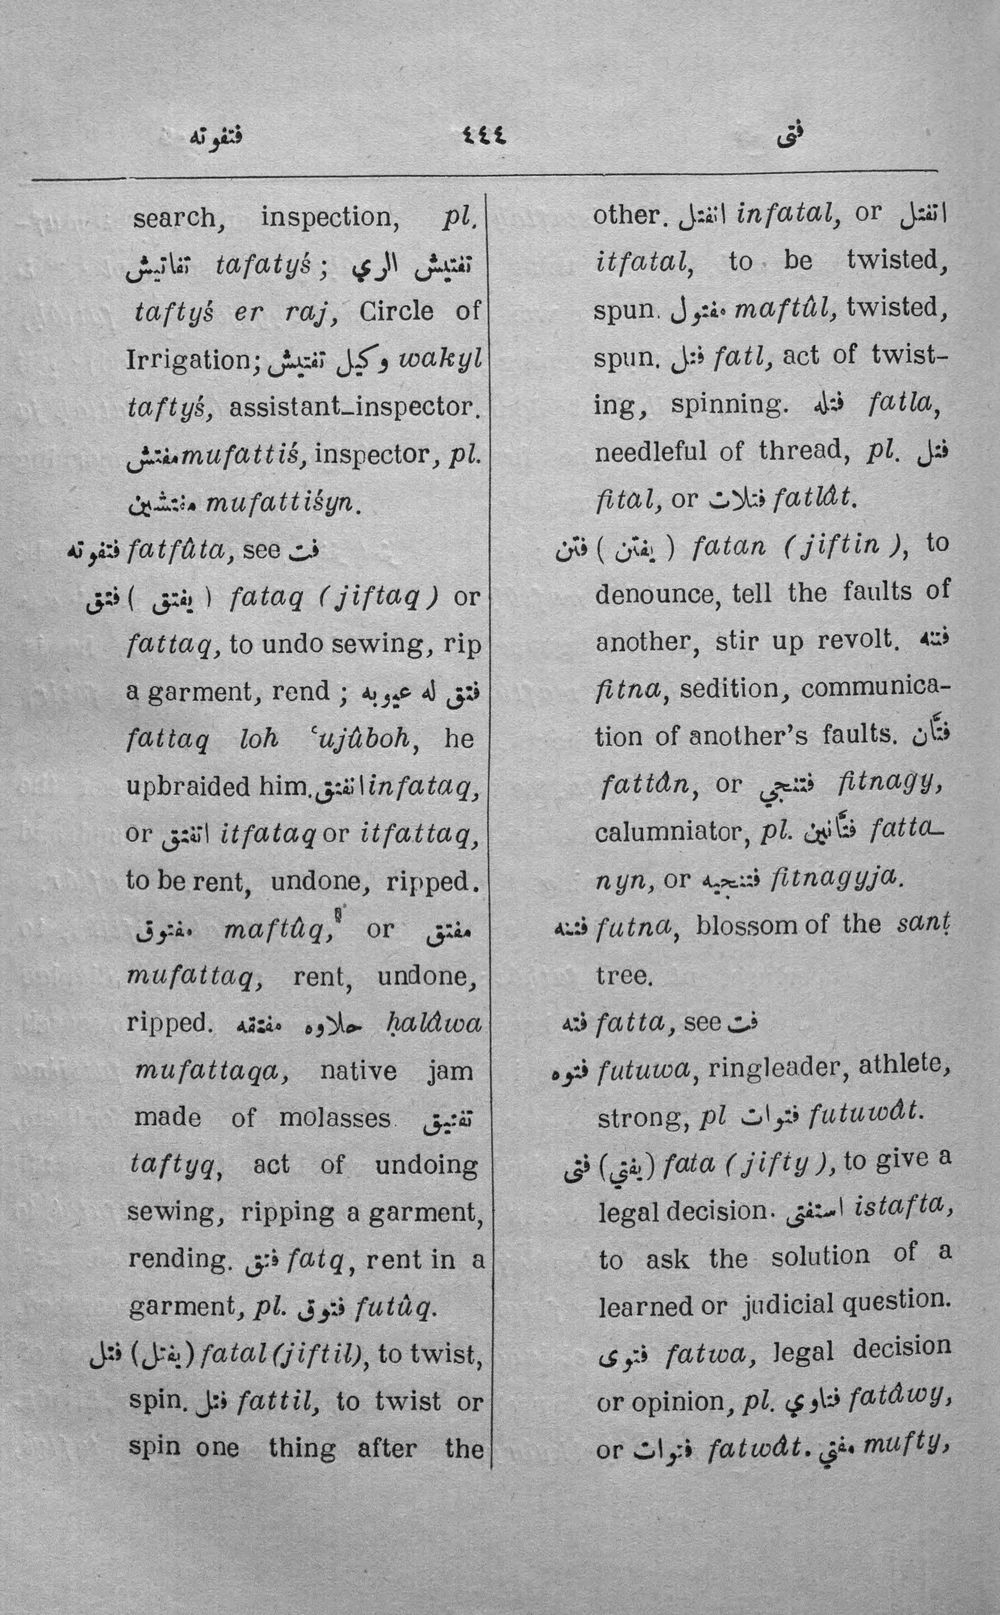 فتفوته ٤٤٤ فتى
search, inspection, pl.
تفاتيش tafatyś ; تفتيش الري
taftyś er raj, Circle of
Irrigation; وكيل تفتيش wakyl
taftyś, assistant-inspector.
مفتش mufattiś, inspector, pl.
مفتشين mufattiśyn.
فتفوته fatfûta, see فت
فتق ( يفتق ) fataq (jiftaq) or
fattaq, to undo sewing, rip
a garment, rend ; فتق له عيوبه
fattaq loh ʿujûboh, he
upbraided him. انفتق infataq,
or اتفتق itfataq or itfattaq,
to be rent, undone, ripped.
مفتوق maftûq, or مفتق
mufattaq, rent, undone,
ripped. حلاوه مفتقه ḥalâwa
mufattaqa, native jam
made of molasses. تفتيق
taftyq, act of undoing
sewing, ripping a garment,
rending. فتق fatq, rent in a
garment, pl. فتوق futûq.
فتل (يفتل) fatal (jiftil), to twist,
spin. فتل fattil, to twist or
spin one thing after the
other. انفتل infatal, or اتفتل
itfatal, to be twisted,
spun. مفتول maftûl, twisted,
spun. فتل fatl, act of twist-
ing, spinning. فتله fatla,
needleful of thread, pl. فتل
fital, or فتلات fatlât.
فتن ( يفتن ) fatan (jiftin ), to
denounce, tell the faults of
another, stir up revolt. فتنه
fitna, sedition, communica-
tion of another's faults. فتَّان
fattân, or فتنجي fitnagy,
calumniator, pl. فتَّانين fatta-
nyn, or فتنجيه fitnagyja.
فتنه futna, blossom of the sanṭ
tree.
فته fatta, see فت
فتوه futuwa, ringleader, athlete,
strong, pl فتوات futuwât.
فتى (يفتي) fata (jifty ), to give a
legal decision. استفتى istafta,
to ask the solution of a
learned or judicial question.
فتوى fatwa, legal decision
or opinion, pl. فتاوي fatâwy,
or فتوات fatwât. مفتي mufty,